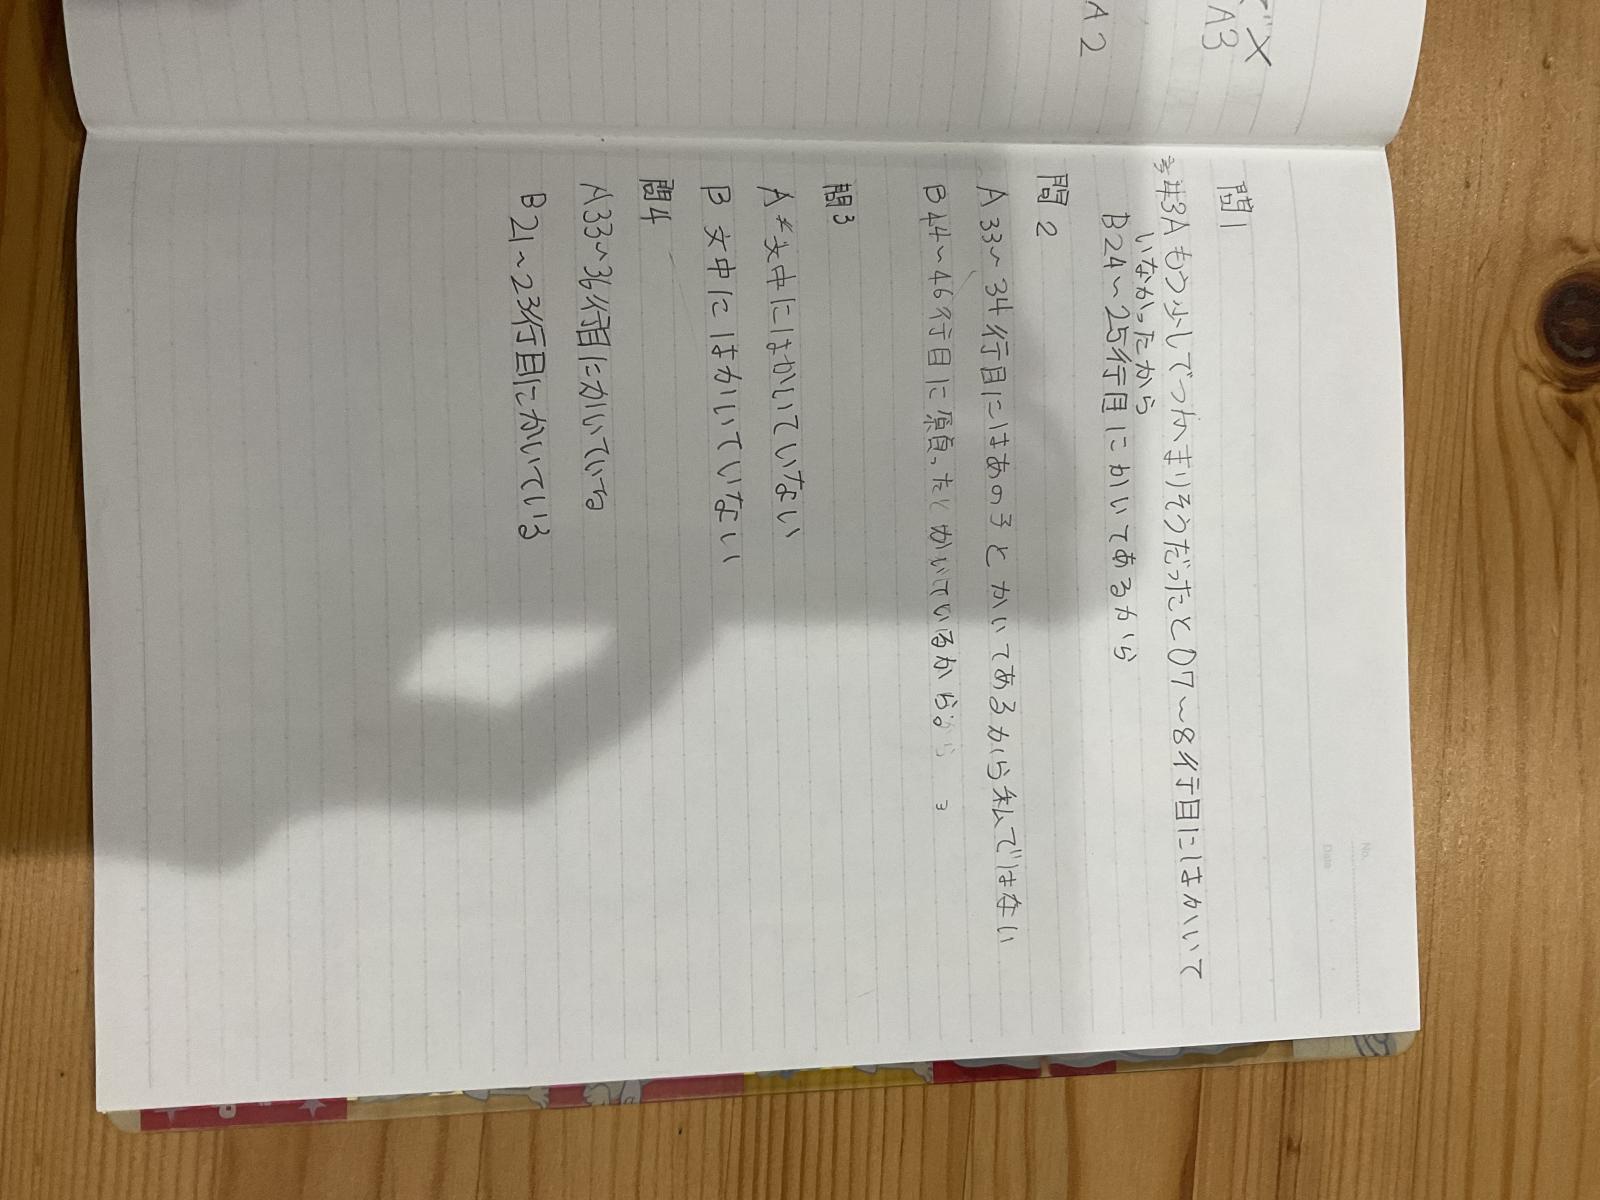 で×
A3
A2
No.
Date
問1
A もう少しでつかまりそうだったと07〜8行目にはかいて
いなかったから
B24〜25行目にかいてあるから
問2
A33〜34行目にはあの子とかいてあるから私ではない
B44〜46行目に原貞ったとかいているから
問3
A 文中にはかいていない
B 文中にはかいていない
問4
A33〜36行目にかいている
B21〜23行目にかいている